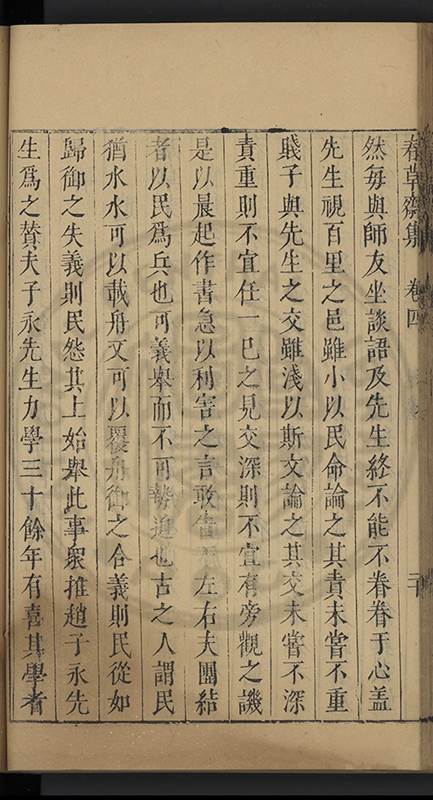 春草齋集 卷四
然每與師友坐談語及先生終不能不眷眷于心蓋
先生視百里之邑雖小以民命論之其責未嘗不重
賤子與先生之交雖淺以斯文論之其交未嘗不深
責重則不宜任一己之見交深則不宜有旁觀之譏
是以晨起作書急以利害之言敢告 左右夫團結
者以民爲兵也可義舉而不可勢迫也古之人謂民
猶水水可以載舟又可以覆舟御之合義則民從如
歸御之失義則民怨其上始舉此事衆推趙子永先
生爲之贊夫子永先生力學三十餘年有喜其學者